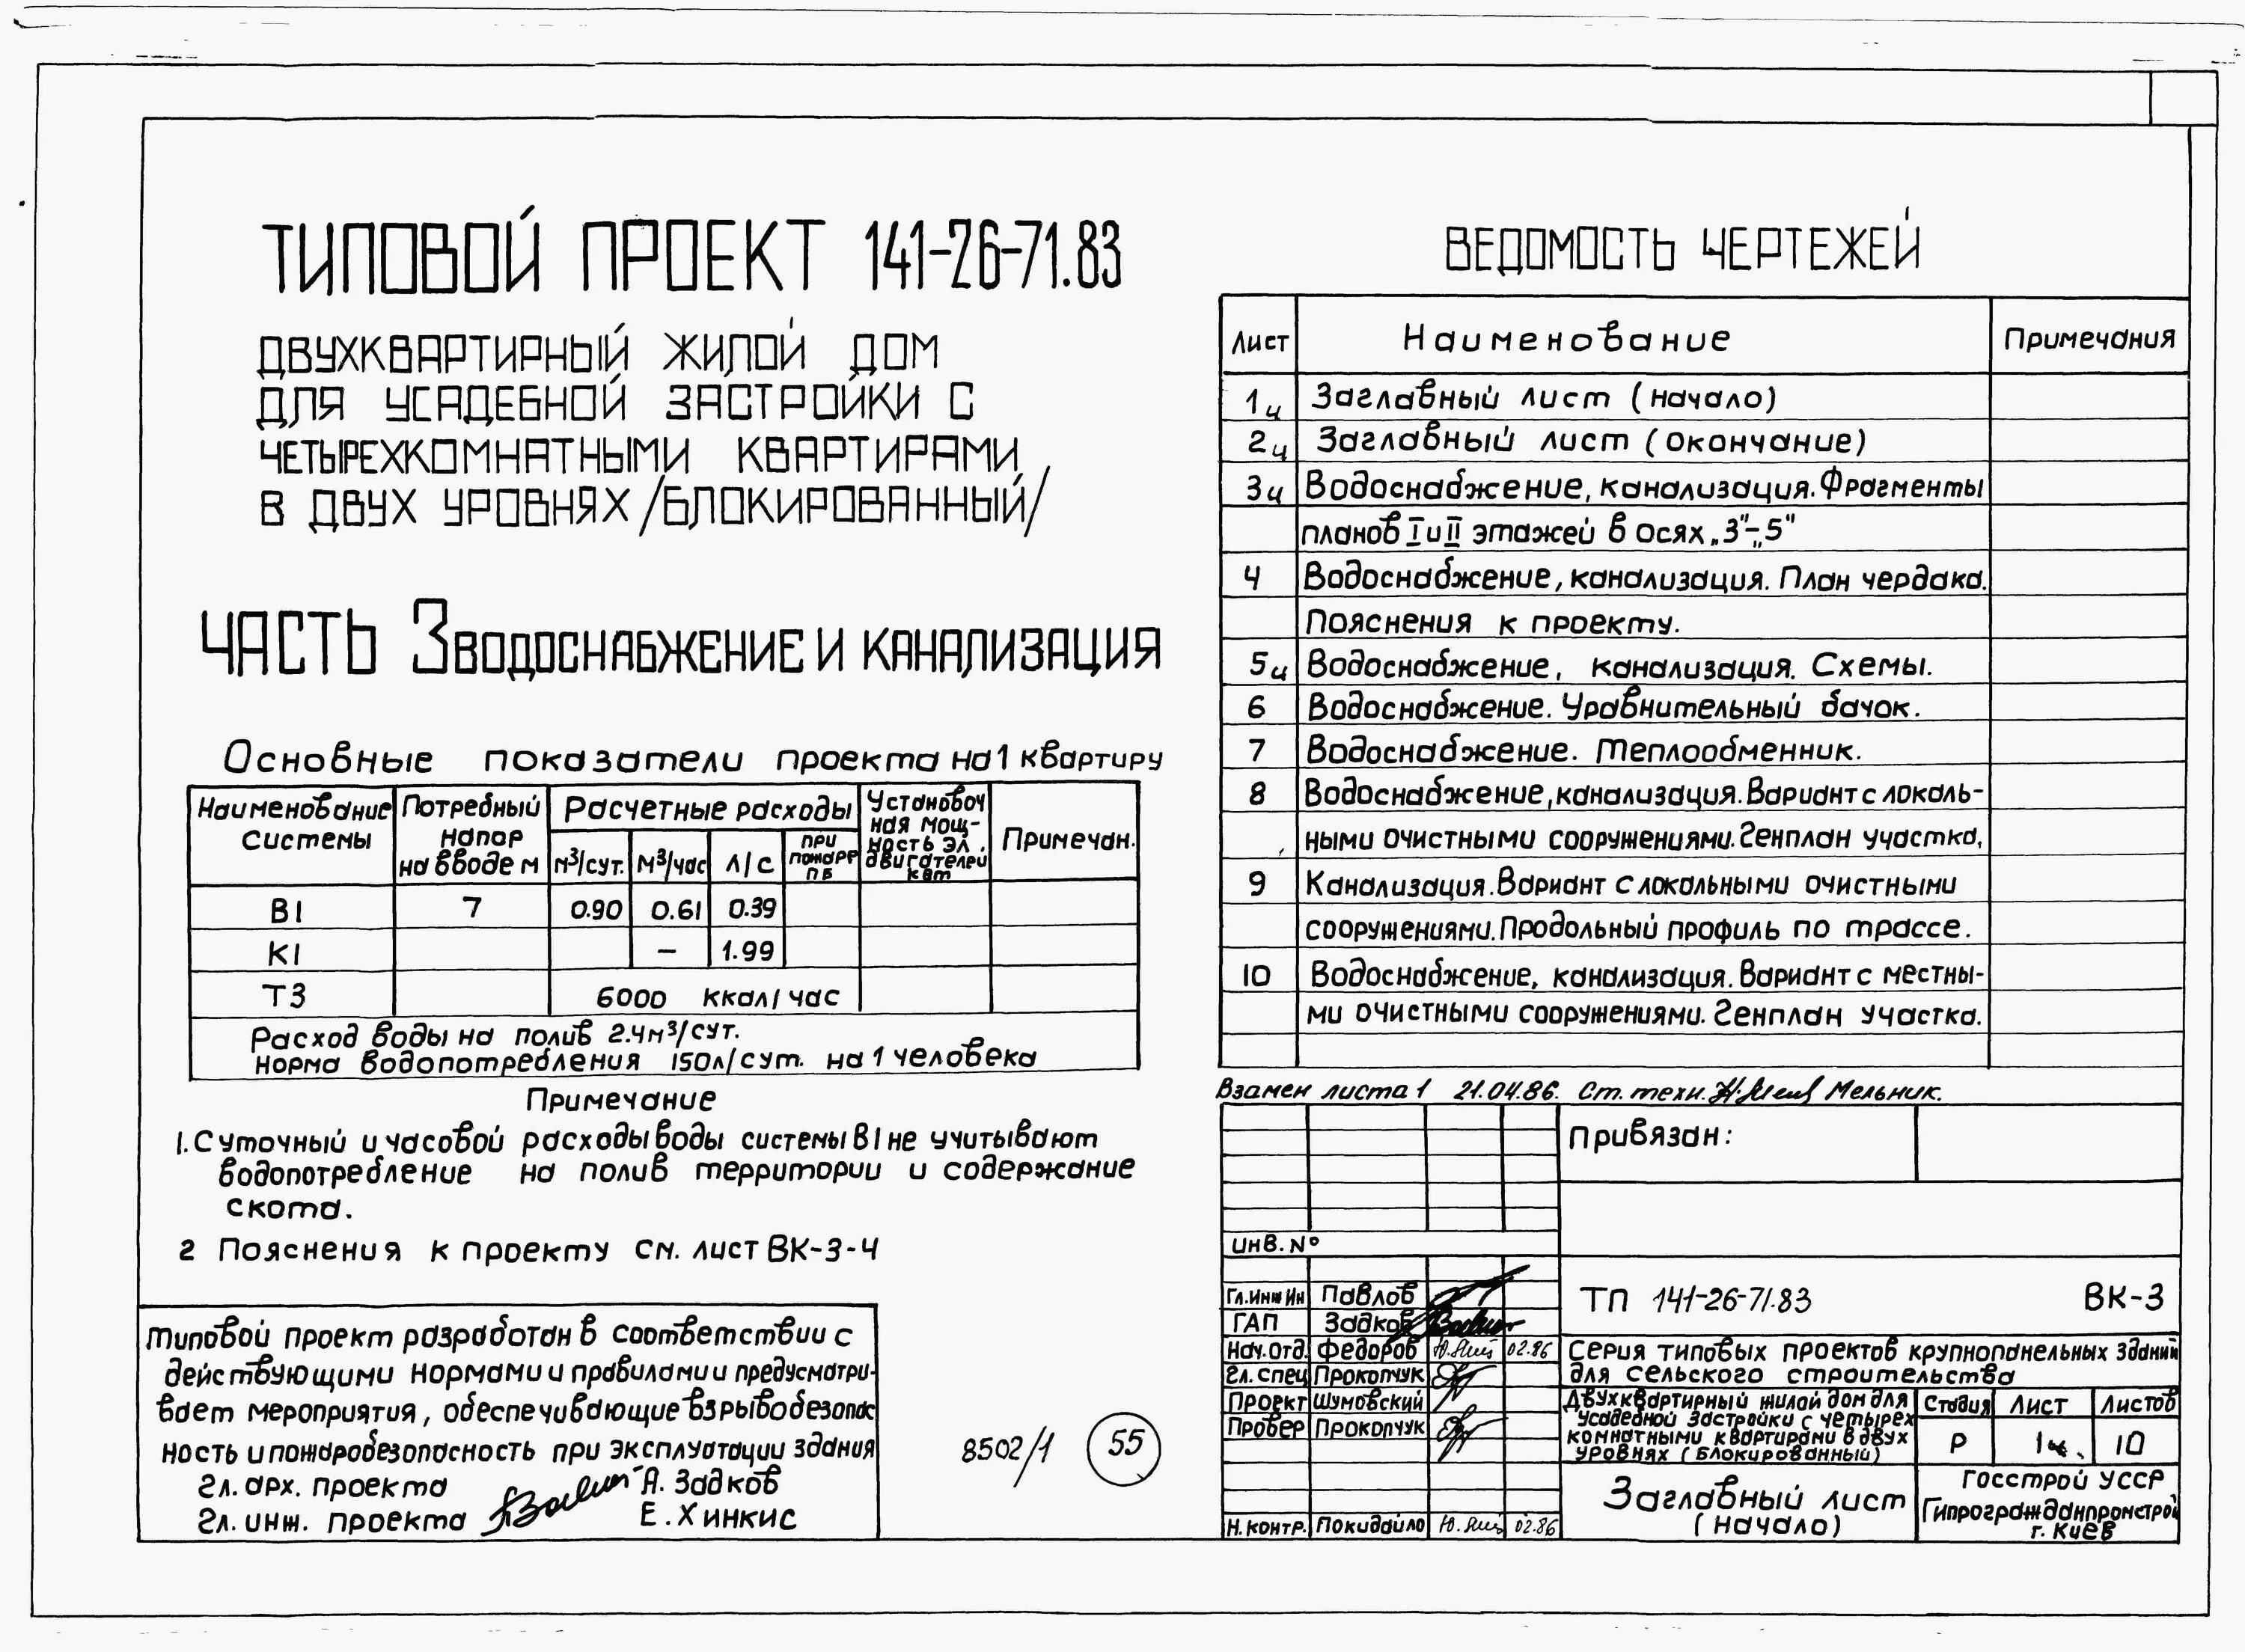 ТИПОВОЙ ПРОЕКТ 141-26-71.83
ДВУХКВАРТИРНЫЙ ЖИЛОЙ ДОМ
ДЛЯ УСАДЕБНОЙ ЗАСТРОЙКИ С
ЧЕТЫРЕХКОМНАТНЫМИ КВАРТИРАМИ
В ДВУХ УРОВНЯХ /БЛОКИРОВАННЫЙ/
ЧАСТЬ 3 ВОДОСНАБЖЕНИЕ И КАНАЛИЗАЦИЯ
Основные показатели проекта на 1 квартиру
Наименование системы | Потребный напор на вводе м | Расчетные расходы | Установочная мощность эл. двигателей квт | Примечан.
м³/сут. | м³/час | л/с | при пожаре ПБ
В1 | 7 | 0.90 | 0.61 | 0.39
К1 | – | 1.99
Т3 | 6000 ккал/час
Расход воды на полив 2.4м³/сут.
Норма водопотребления 150л/сут. на 1 человека
Примечание
1. Суточный и часовой расходы воды системы В1 не учитывают
водопотребление на полив территории и содержание
скота.
2 Пояснения к проекту см. лист ВК-3-4
Типовой проект разработан в соответствии с
действующими нормами и правилами и предусматри-
вает мероприятия, обеспечивающие взрывобезопас
ность и пожаробезопасность при эксплуатации здания
Гл. арх. проекта А. Задков
Гл. инж. проекта Е. Хинкис
8502/1 55
ВЕДОМОСТЬ ЧЕРТЕЖЕЙ
Лист | Наименование | Примечания
1и Заглавный лист (начало)
2и Заглавный лист (окончание)
3и Водоснабжение, канализация. Фрагменты
планов I и II этажей в осях „3"–„5"
4 Водоснабжение, канализация. План чердака.
Пояснения к проекту.
5и Водоснабжение, канализация. Схемы.
6 Водоснабжение. Уравнительный бачок.
7 Водоснабжение. Теплообменник.
8 Водоснабжение, канализация. Вариант с локаль-
ными очистными сооружениями. Генплан участка.
9 Канализация. Вариант с локальными очистными
сооружениями. Продольный профиль по трассе.
10 Водоснабжение, канализация. Вариант с местны-
ми очистными сооружениями. Генплан участка.
Взамен листа 1 21.04.86. Ст. техн. Мельник.
Привязан:
Инв. №
Гл. инж ин Павлов
ГАП Задков
Нач. отд. Федоров 02.86
Гл. спец Прокопчук
Проект Шумовский
Провер Прокопчук
Н. контр. Покидайло 02.86
ТП 141-26-71.83 ВК-3
Серия типовых проектов крупнопанельных зданий
для сельского строительства
Двухквартирный жилой дом для
усадебной застройки с четырех
комнатными квартирами в двух
уровнях (блокированный)
Стадия | Лист | Листов
Р | 1и. | 10
Заглавный лист
(начало)
Госстрой УССР
Гипрогражданпромстрой
г. Киев